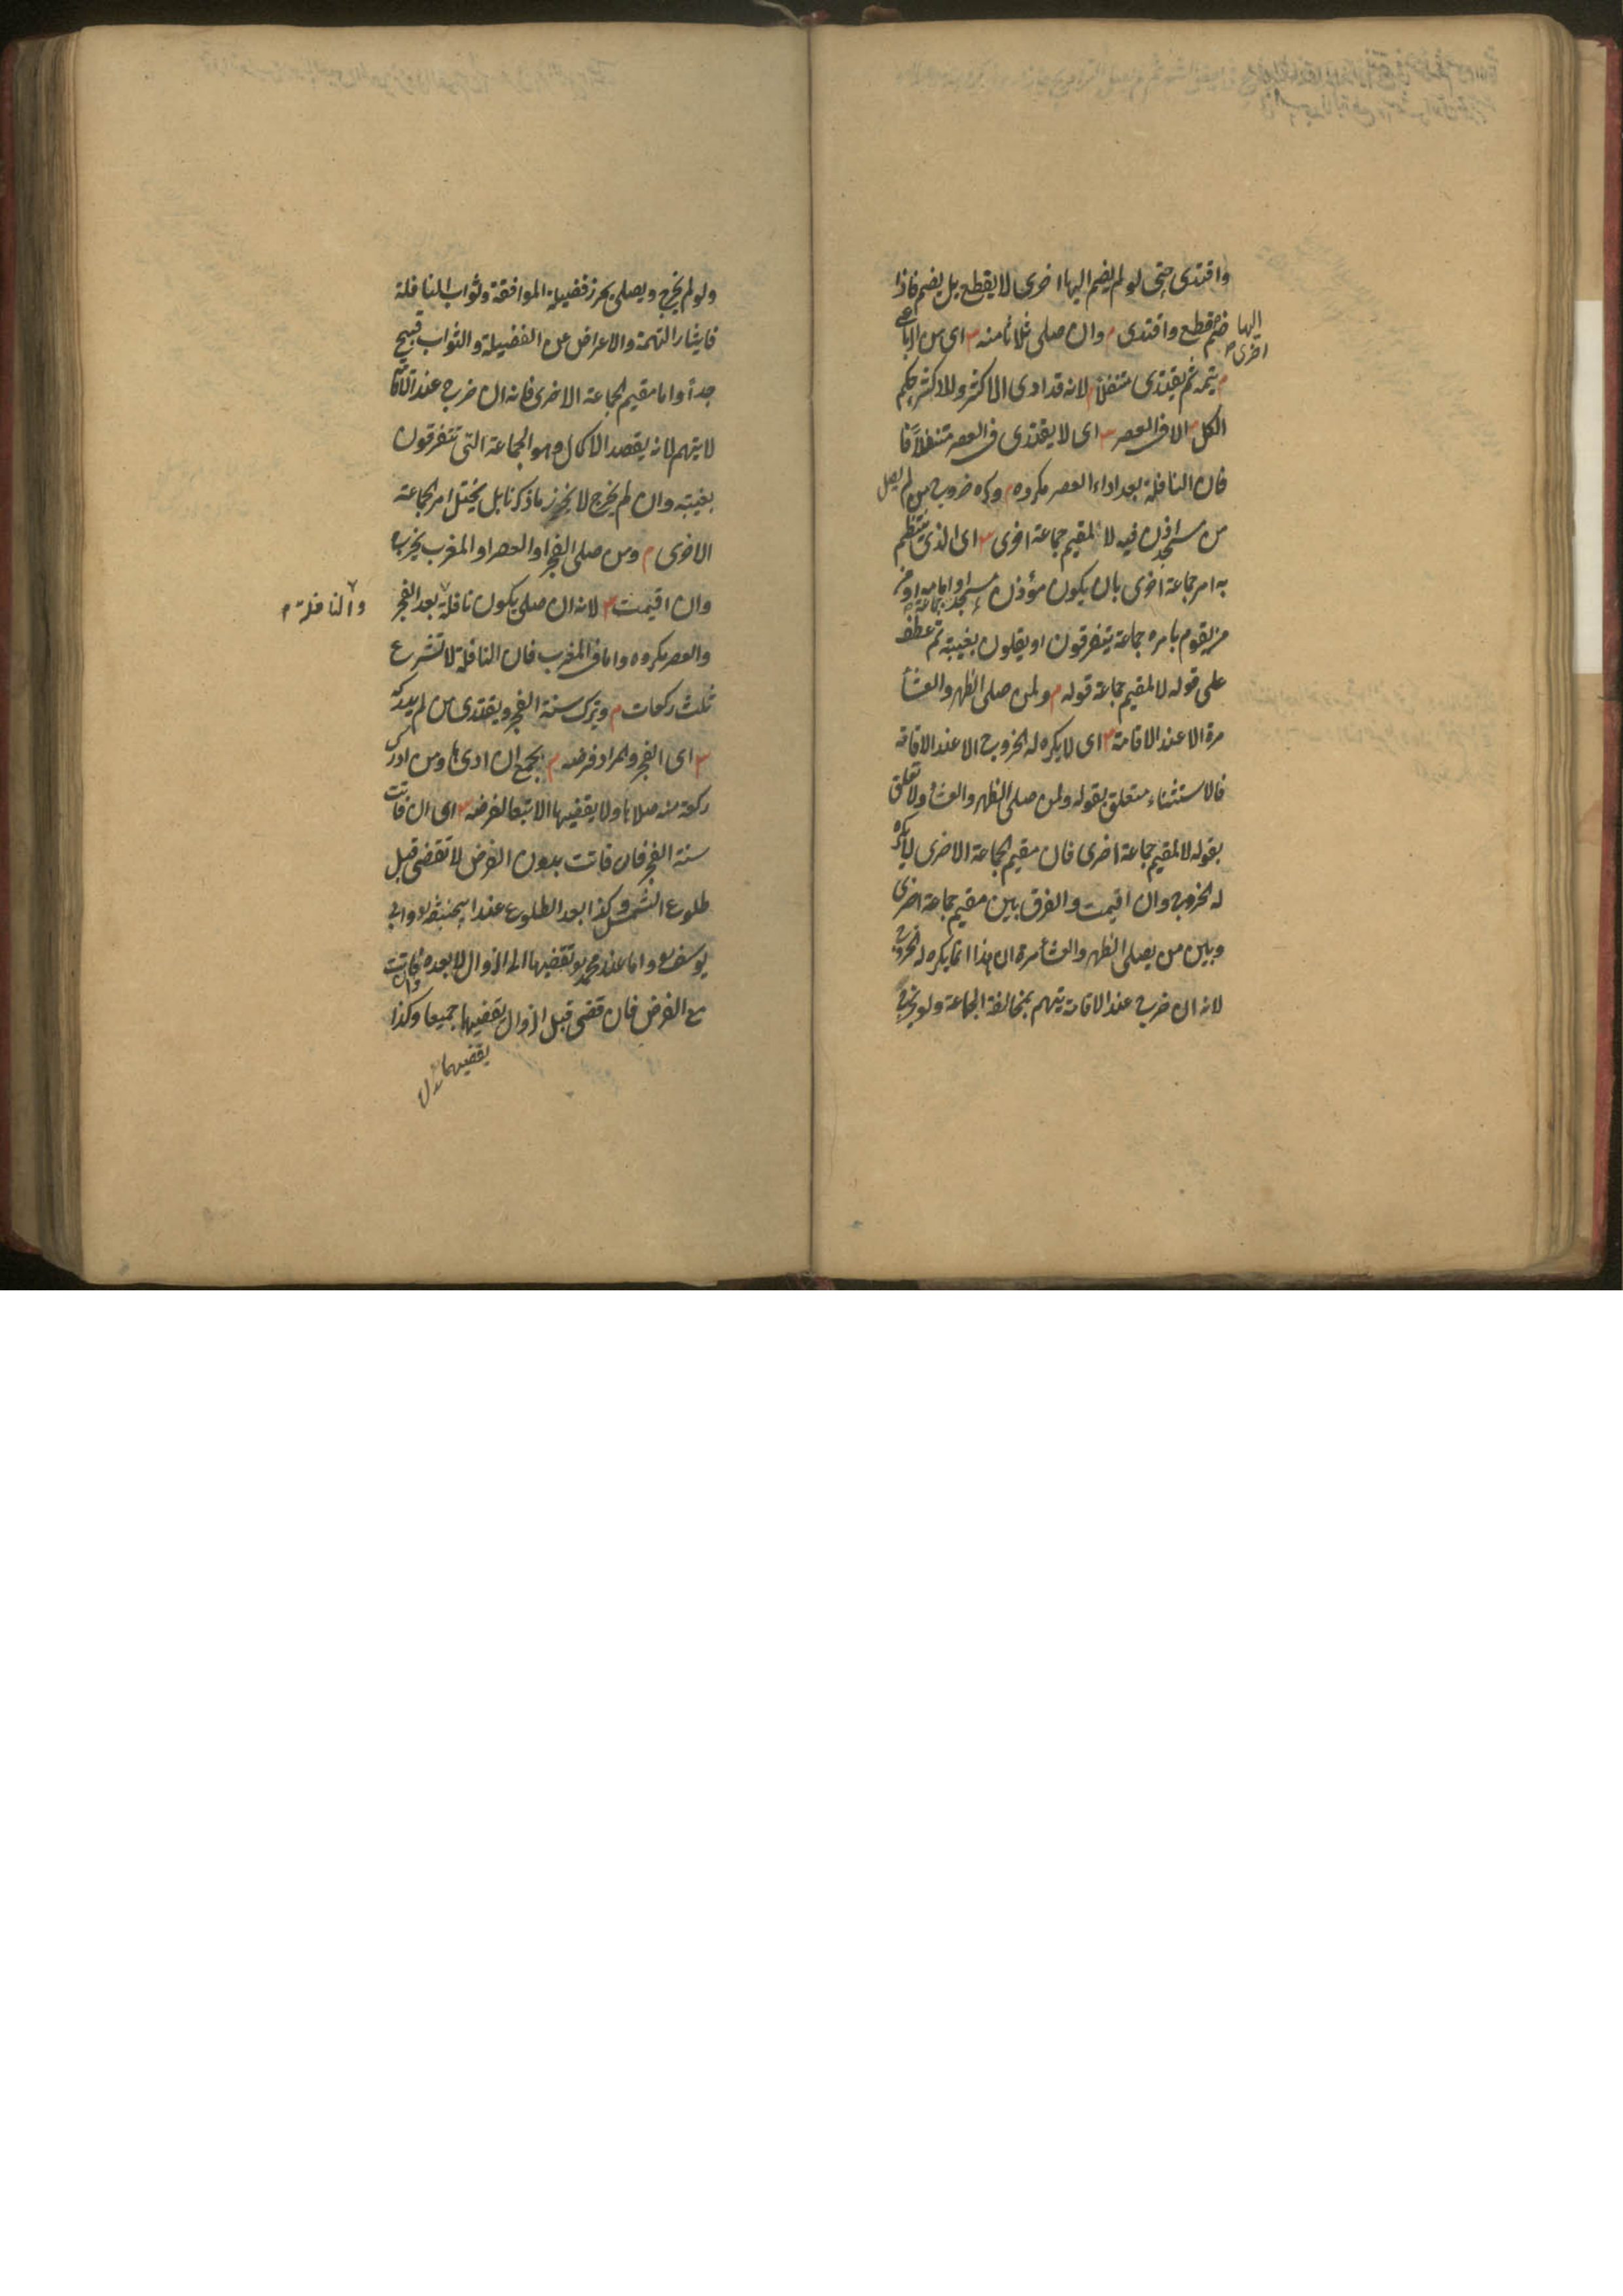 واقتدى حتى لو لم يضم اليها اخرى لا يقطع بل يضم فاذا
ضم قطع واقتدى م وان صلى ثلاثا منه س اى من الرباعى
اليها اخرى
م يتمه ثم يقتدى متنفلا لانه قد ادى الاكثر وللاكثر حكم
الكل الا فى العصر س اى لا يقتدى فى العصر متنفلا فا
فان النافلة بعد اداء العصر مكروه م وكره خروج من لم يصل
من مسجد اذن فيه لا لمقيم جماعة اخرى س اى الذى ينتظم
به امر جماعة اخرى بان يكون مؤذن مسجد او امامه او
من يقوم بامره جماعة يتفرقون او يقلون بغيبته ثم عطف
على قوله لا لمقيم جماعة قوله م ولمن صلى الظهر والعشا
مرة الا عند الاقامة س اى لا يكره له الخروج الا عند الاقامة
فالاستثناء متعلق بقوله ولمن صلى الظهر والعشا ولا تعلق
بقوله لا لمقيم جماعة اخرى فان مقيم الجماعة الاخرى لا يكره
له الخروج وان اقيمت والفرق بين مقيم جماعة اخرى
وبين من يصلى الظهر والعشا مرة ان هذا انما يكره له الخروج
لانه ان خرج عند الاقامة يتهم بمخالفة الجماعة ولو يخرج
ولو لم يخرج ويصلى يحرز فضيلة الموافقة وثواب النافلة
فايثار التهمة والاعراض عن الفضيلة والثواب قبيح
جدا واما مقيم الجماعة الاخرى فانه ان خرج عند الاقا
لا يتهم لانه يقصد الاكمال وهو الجماعة التى تتفرقون
بغيبته وان لم يخرج لا يحرز ما ذكرنا بل يختل امر الجماعة
الاخرى م ومن صلى الفجر او العصر او المغرب يخرج
وان اقيمت س لانه ان صلى يكون نافلة بعد الفجر
والنافلة
والعصر مكروه واما فى المغرب فان النافلة لا تشرع
ثلث ركعات م وترك سنة الفجر ويقتدى من لم يدركه
س اى الفجر والمراد فرضه م بجمع ان اداها ومن ادرك
ركعة منه صلاها ولا يقضيها الا تبعا لفرضه س اى ان فاتت
سنة الفجر فان فاتت بدون الفرض لا تقضى قبل
طلوع الشمس وكذا بعد الطلوع عند ابيحنيفة وابى
يوسف واما عند محمد تقضيها الى الزوال لا بعده وان فاتت
مع الفرض فان قضى قبل الزوال يقضيها جميعا وكذا
يقضيهما